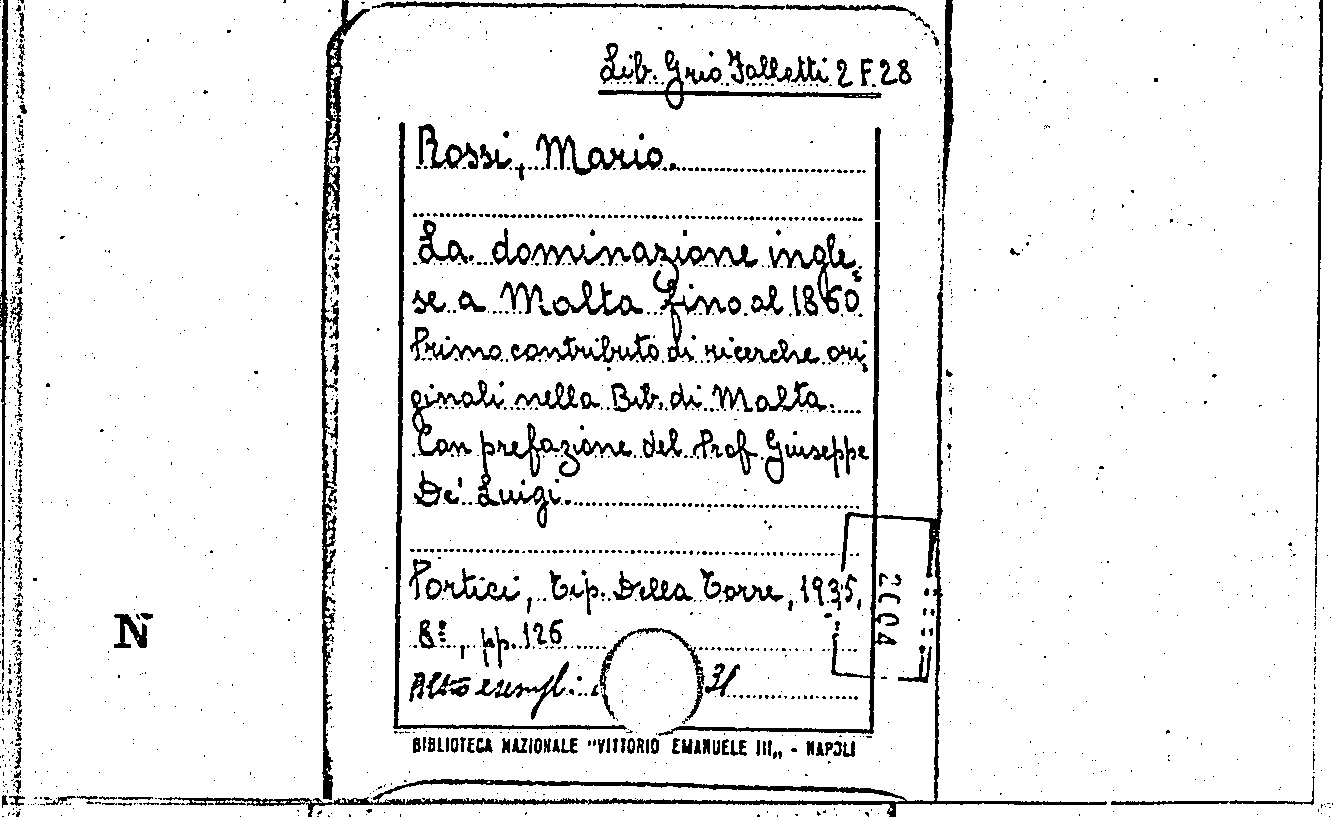 Lib. Grio Falletti 2 F 28
Rossi, Mario.
La dominazione ingle
se a Malta fino al 1860
Primo contributo di ricerche ori
ginali nella Bib. di Malta.
Con prefazione del Prof Giuseppe
De' Luigi.
Portici, Tip. Della Torre, 1935,
8º, pp. 126
Altro esempl.
31
BIBLIOTECA NAZIONALE "VITTORIO EMANUELE III„ - NAPOLI
2004
N